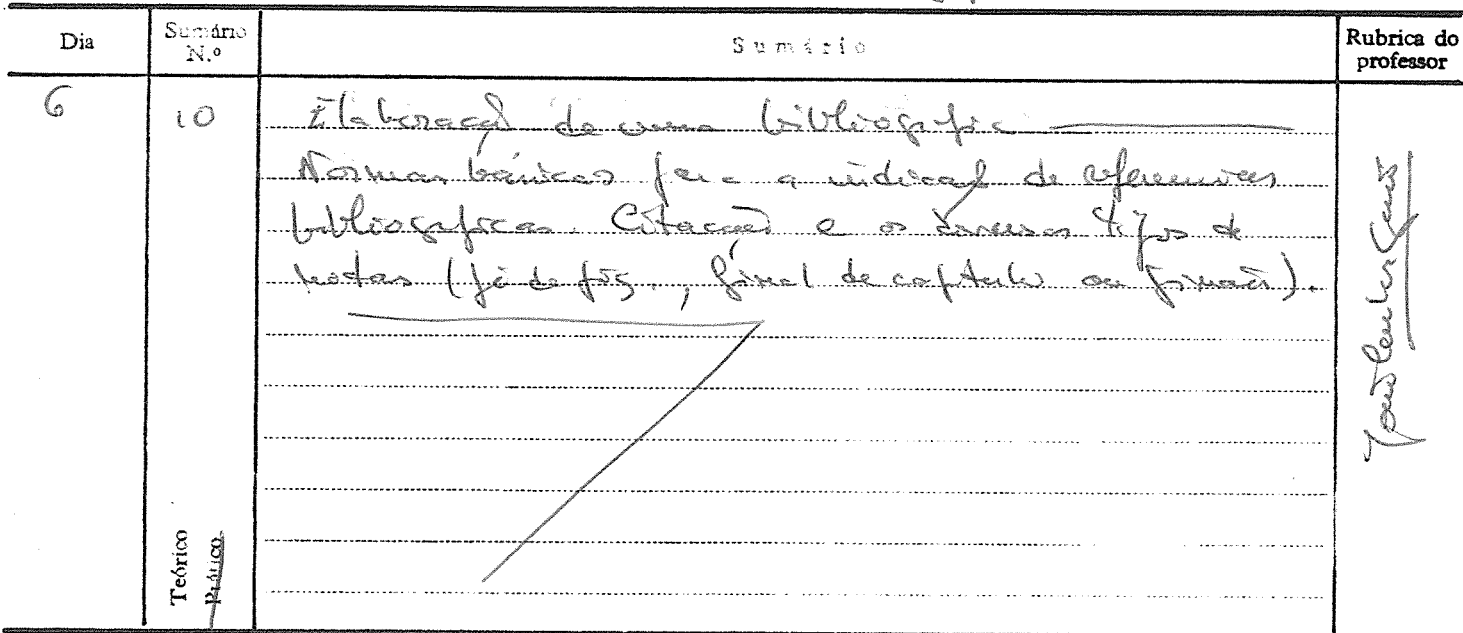 Dia
Sumário N.º
Sumário
Rubrica do professor
6
10
Elaboração de uma bibliografia
Normas básicas para a indicação de referências
bibliográficas. Citações e os diversos tipos de
notas (pé de pág., final de capítulo ou finais).
Teórico
Prático